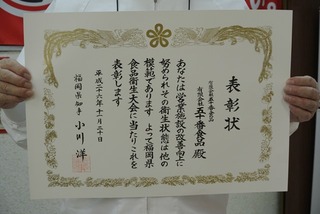 表彰状
有限会社 五十番食品 殿
あなたは営業施設の改善向上に
努められその衛生状態は他の
模範であります よって福岡県
食品衛生大会に当たりこれを
表彰します
平成二十六年十一月二十日
福岡県知事 小川 洋